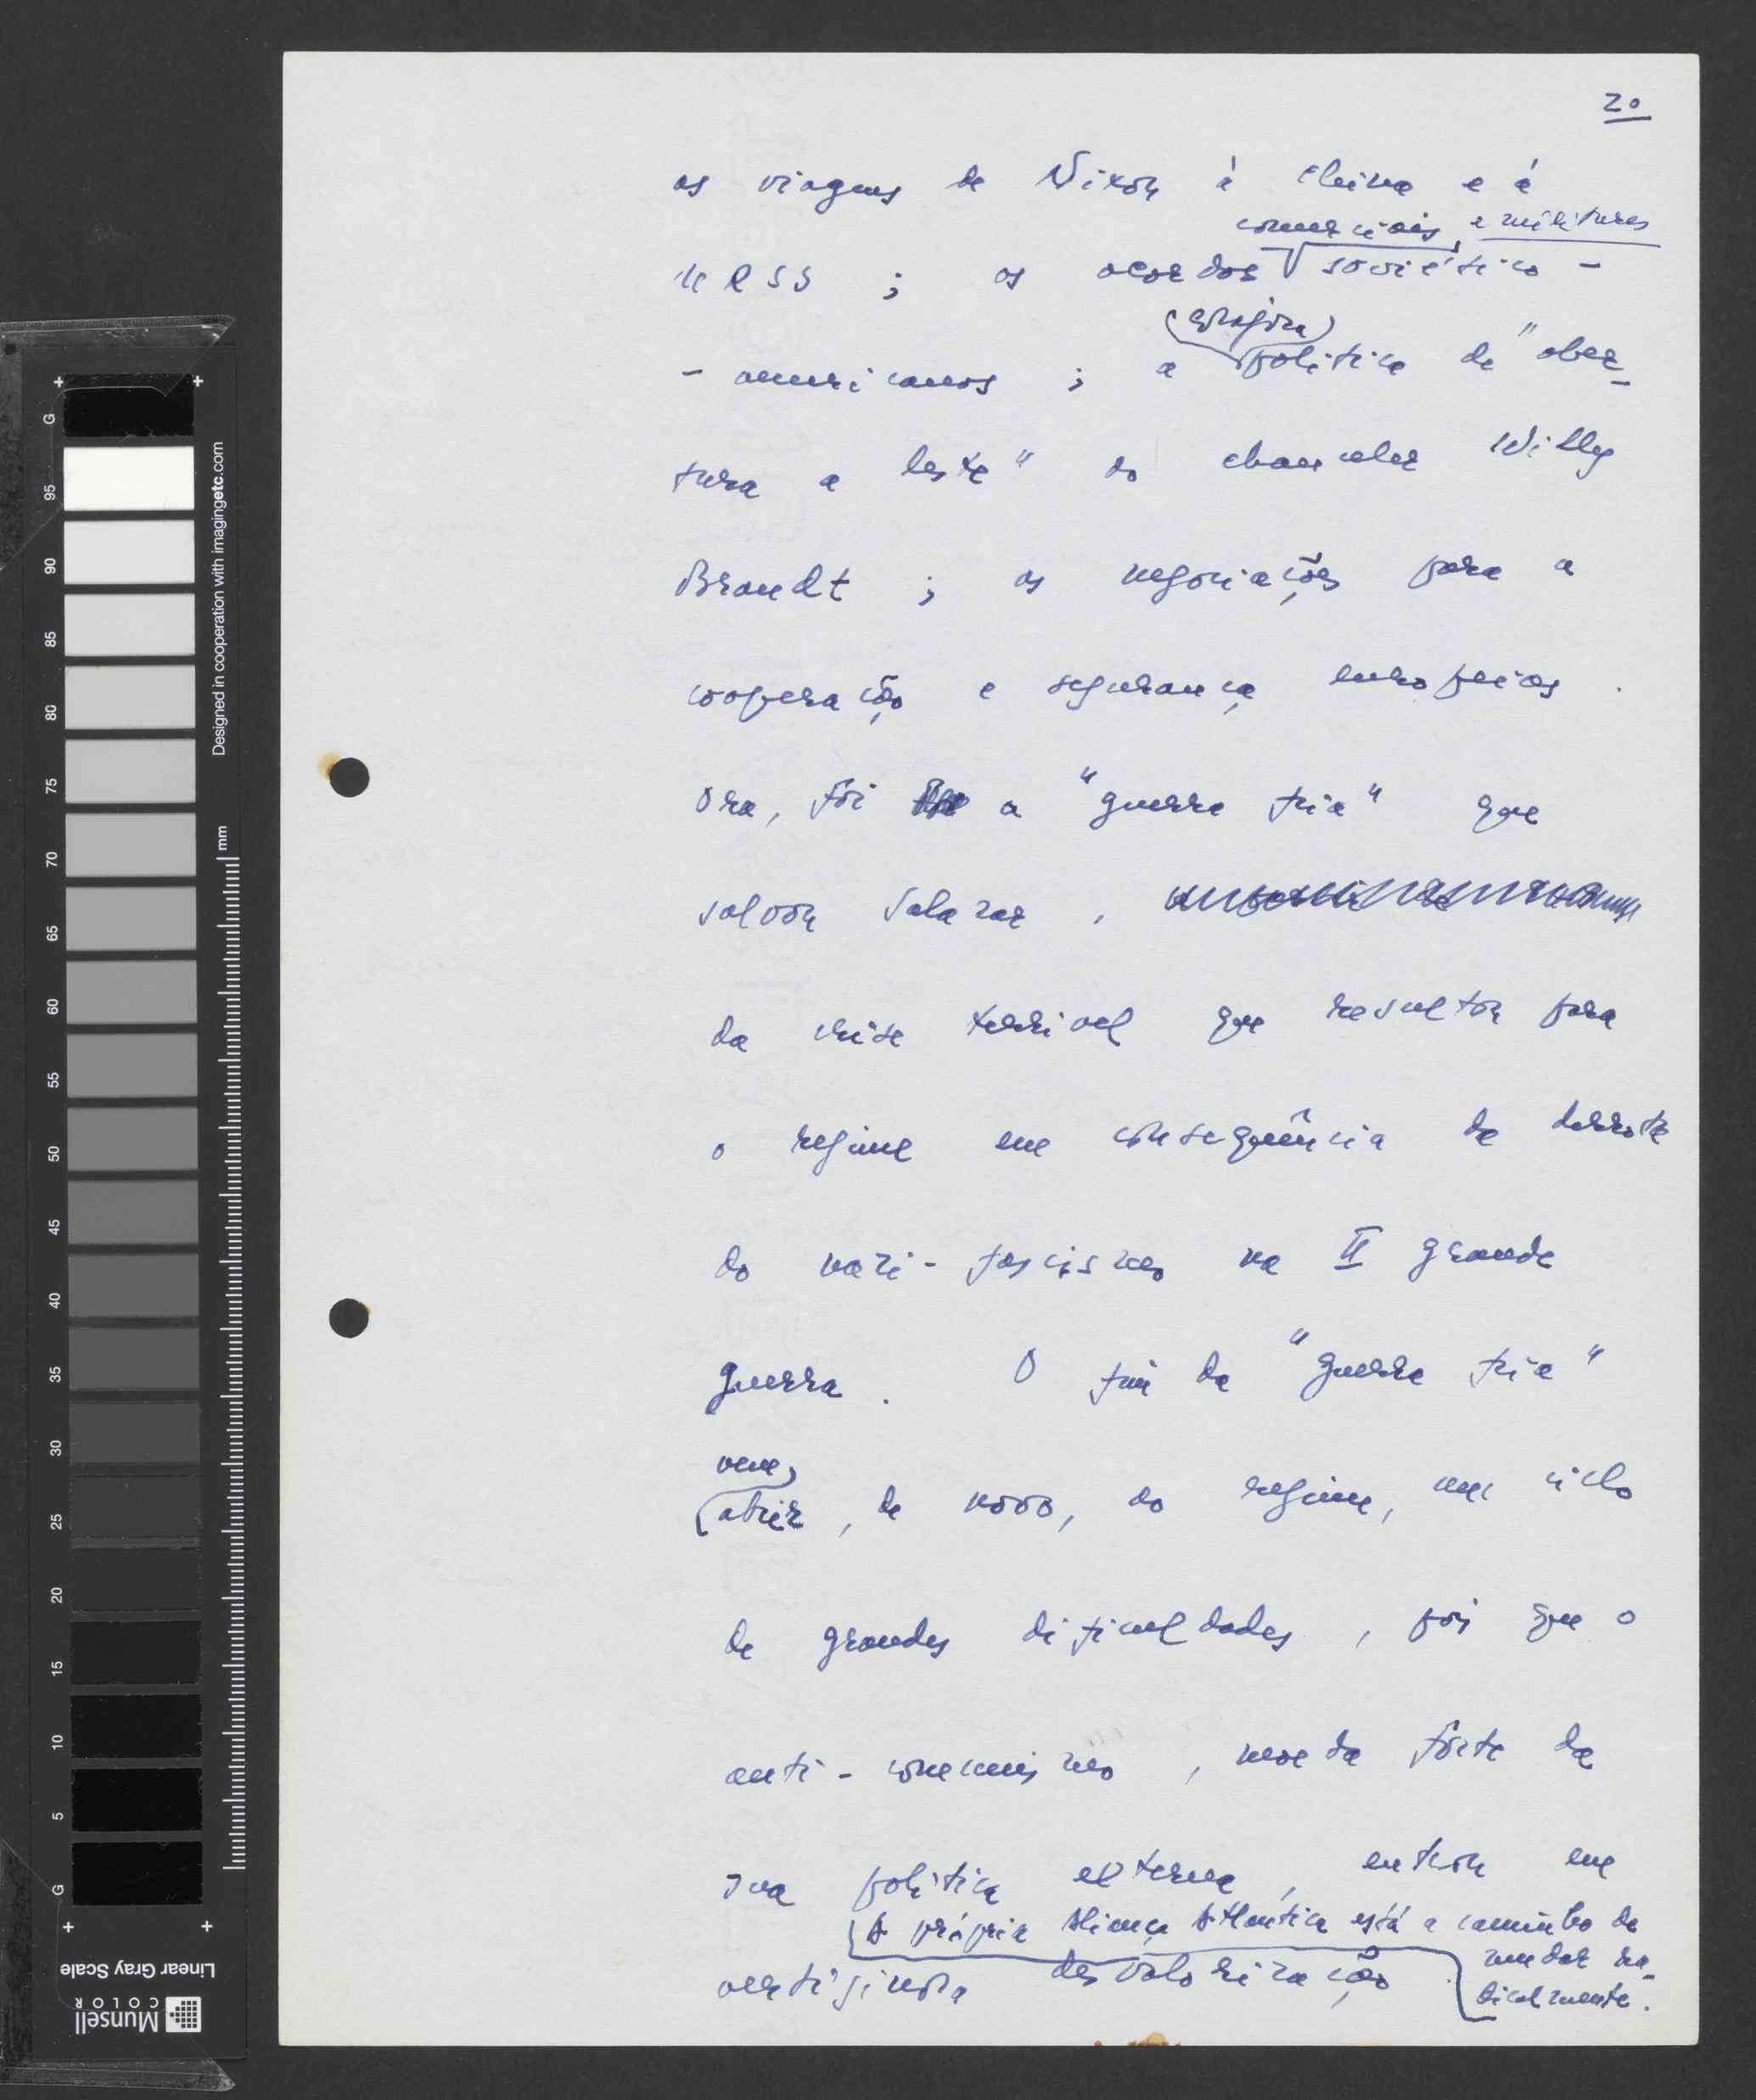 20
as viagens de Nixon à China e à
comerciais, e militares
URSS ; os acordos soviético -
(corajosa)
- americanos ; a política de "aber_
tura a leste" do chanceler Willy
Brandt ; as negociações para a
cooperação e segurança europeias .
Ora, foi a "guerra fria" que
salvou Salazar ,
da crise terrivel que resultou para
o regime em consequência da derrota
do nazi-fascismo na II grande
guerra . O fim da "guerra fria"
vem
abrir, de novo, ao regime, um ciclo
de grandes dificuldades , pois que o
anti-comunismo , moeda forte da
sua política externa , entrou em
A própria Aliança Atlântica está a caminho de
mudar ra_
vertiginosa desvalorização .
dicalmente .
G
95
90
85
80
75
70
65
60
55
50
45
40
35
30
25
20
15
10
5
G
mm
Designed in cooperation with imagingetc.com
Linear Gray Scale
Munsell
COLOR